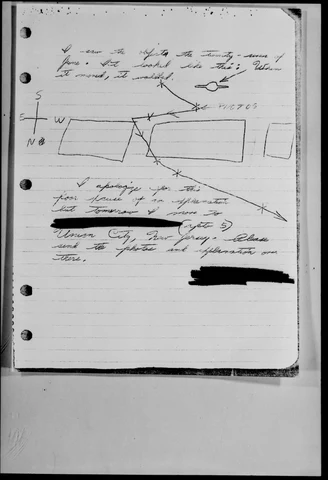 I saw the objects the twenty-seven of
June. It looked like this: When
it moved, it wobbled.
S
PHOTOS
E W
N
I apologize for this
poor excuse of an explanation
but tomorrow I move to
(apt 5)
Union City, New Jersey. Please
send the photos and explanation over
there.